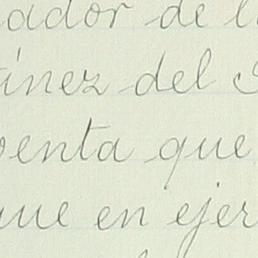 ador de l
ínez del
venta que
que en ejer